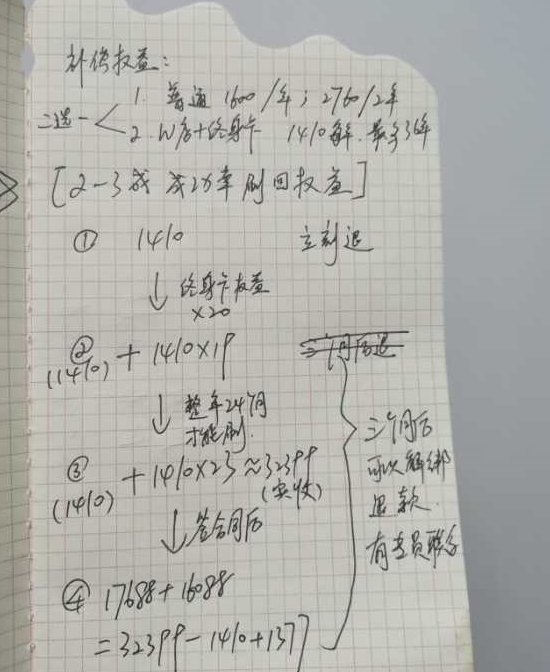 补偿权益:
二选一
1. 普通 1600/年; 2760/2年
2. W店+终身卡 1410每年. 最多36年
[2-3成 成功率 刷回权益]
① 1410 立刻退
↓ 终身卡权益
×20
② (1410) + 1410×19
↓ 整年24个月
才能刷.
③ (1410) + 1410×23 ≈32399
(实收)
↓ 签合同后
④ 17688+16088
=32399-1410+1377
三个月后
可以解绑
退款.
有专员联系